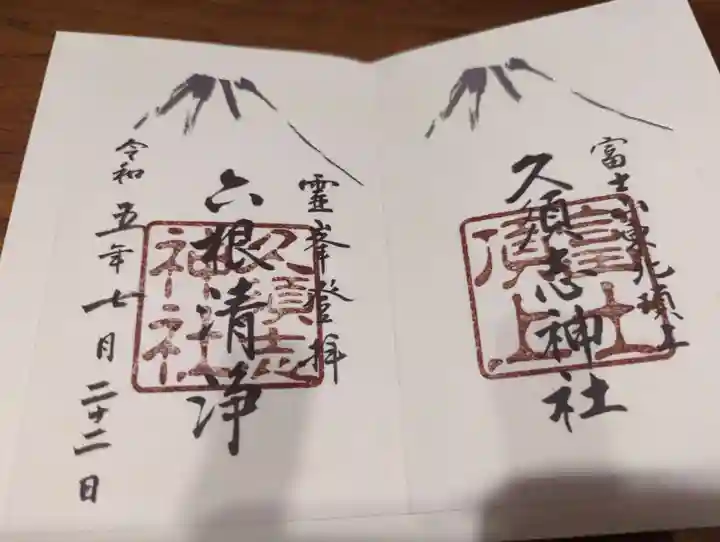 富士山東北頂上
久須志神社
富士
頂上
霊峯登拝
六根清浄
久須志
神社
令和五年七月二十二日